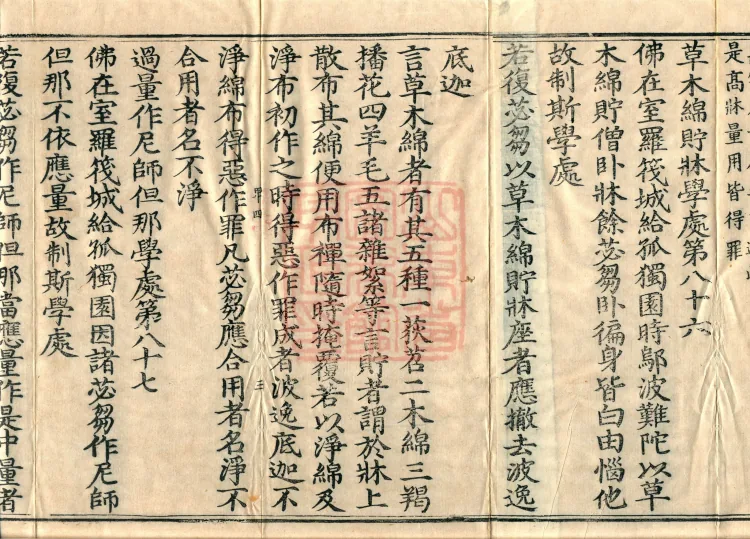 是高牀量用皆得罪
草木綿貯牀學處第八十六
佛在室羅筏城給孤獨園時鄔波難陀以草
木綿貯僧卧牀餘苾芻卧徧身皆白由惱他
故制斯學處
若復苾芻以草木綿貯牀座者應撤去波逸
底迦
言草木綿者有其五種一荻苕二木綿三羯
播花四羊毛五諸雜絮等言貯者謂於牀上
散布其綿便用布襌隨時掩覆若以淨綿及
淨布初作之時得惡作罪成者波逸底迦不
甲四
三
淨綿布得惡作罪凡苾芻應合用者名淨不
合用者名不淨
過量作尼師但那學處第八十七
佛在室羅筏城給孤獨園因諸苾芻作尼師
但那不依應量故制斯學處
若復苾芻作尼師但那當應量作是中量者